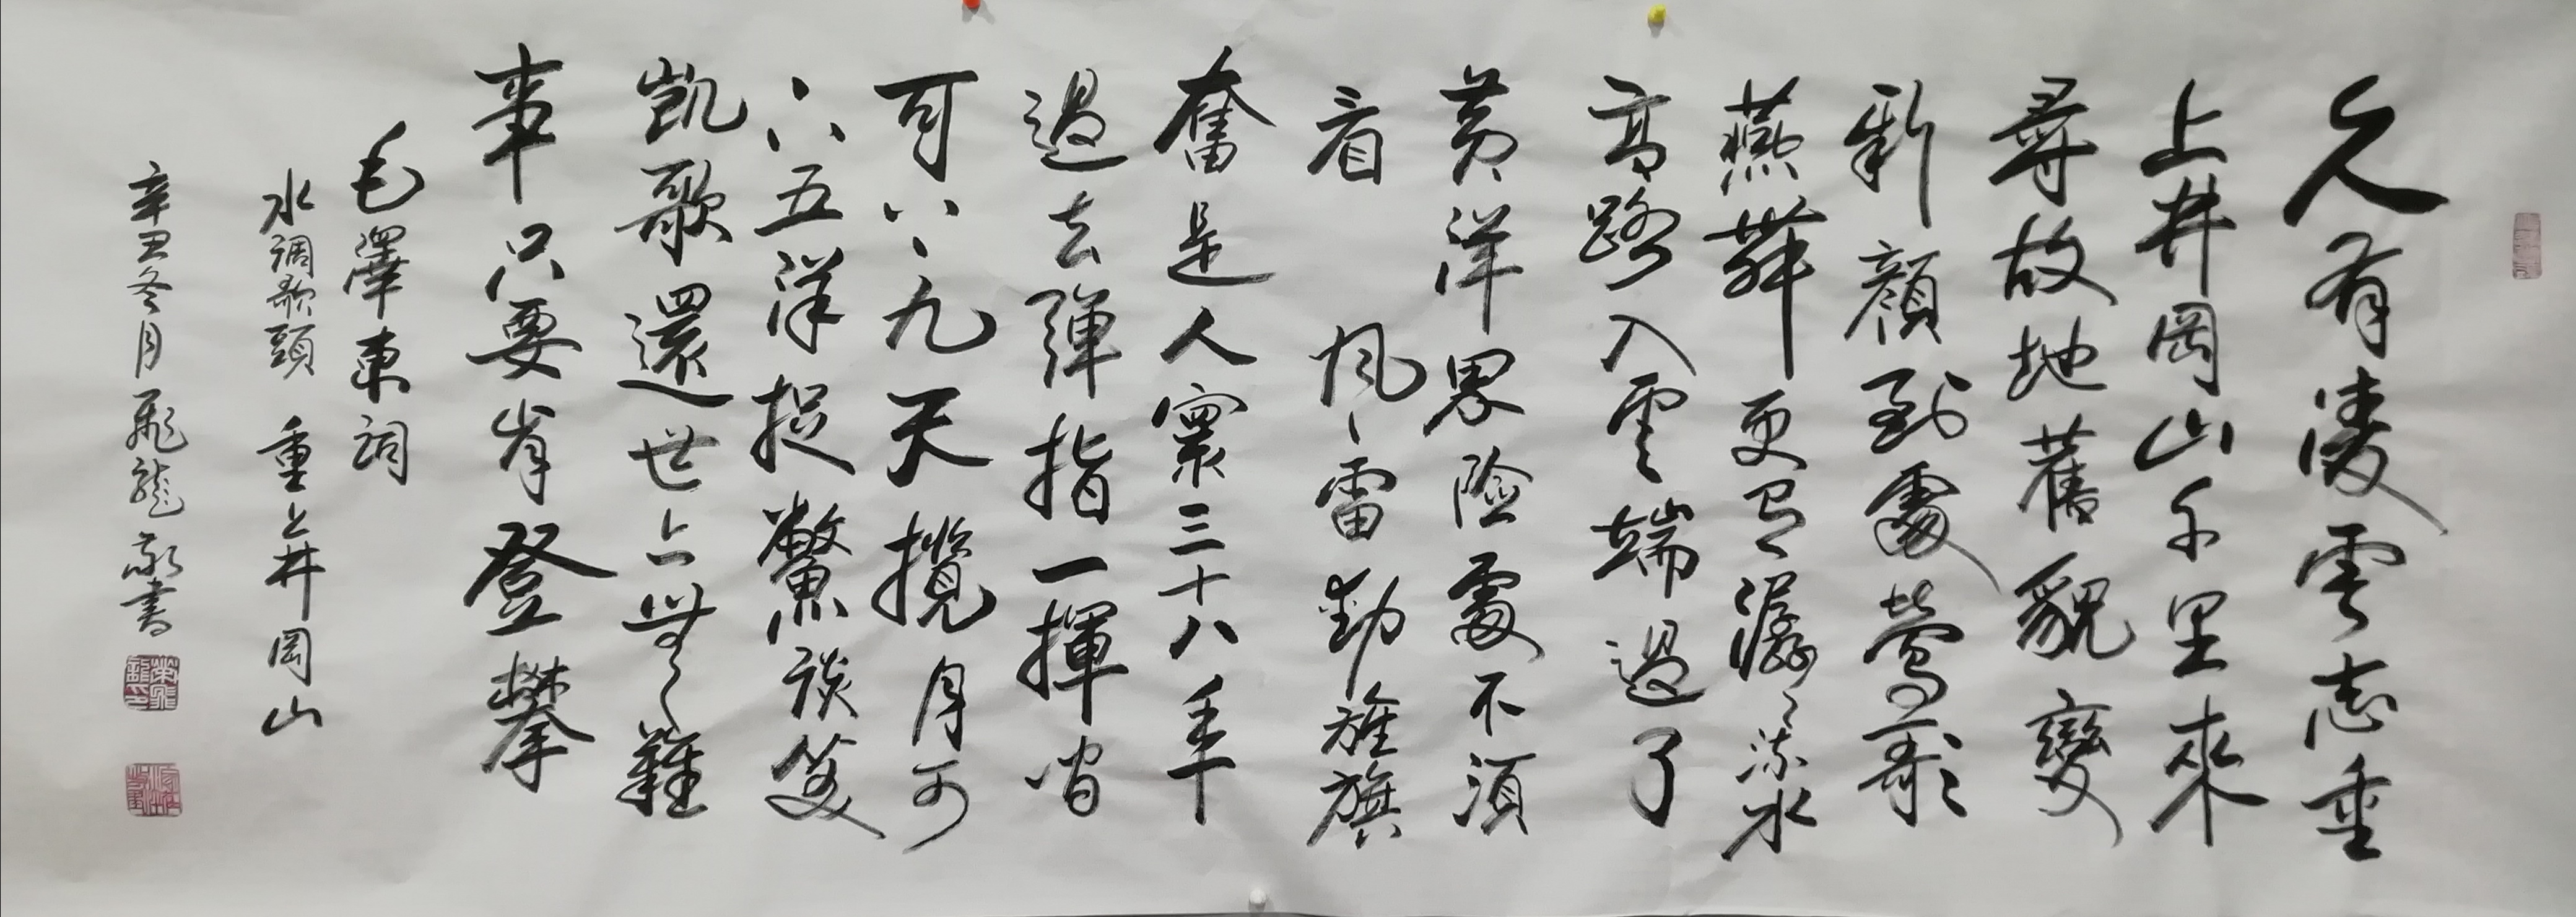 久有凌雲志重
上井岡山千里來
尋故地舊貌變
新顏到處鶯歌
燕舞更有潺〻流水
高路入雲端過了
黃洋界險處不須
看 風、雷動旌旗
奮是人寰三十八年
過去彈指一揮間
可上九天攬月可
下五洋捉鱉談笑
凱歌還世上無難
事只要肯登攀
毛澤東詞
水調歌頭 重上井岡山
辛丑冬月飛龍敬書